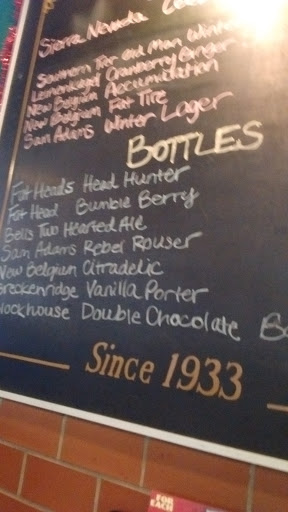 Sierra Nevada
Southern Tier Old Man Winter
Leinenkugel Cranberry Ginger
New Belgium Accumulation
New Belgium Fat Tire
Sam Adams Winter Lager
BOTTLES
Fat Heads Head Hunter
Fat Head Bumble Berry
Bells Two Hearted Ale
Sam Adams Rebel Rouser
New Belgium Citradelic
Breckenridge Vanilla Porter
lockhouse Double Chocolate
Since 1933
FOR
EACH